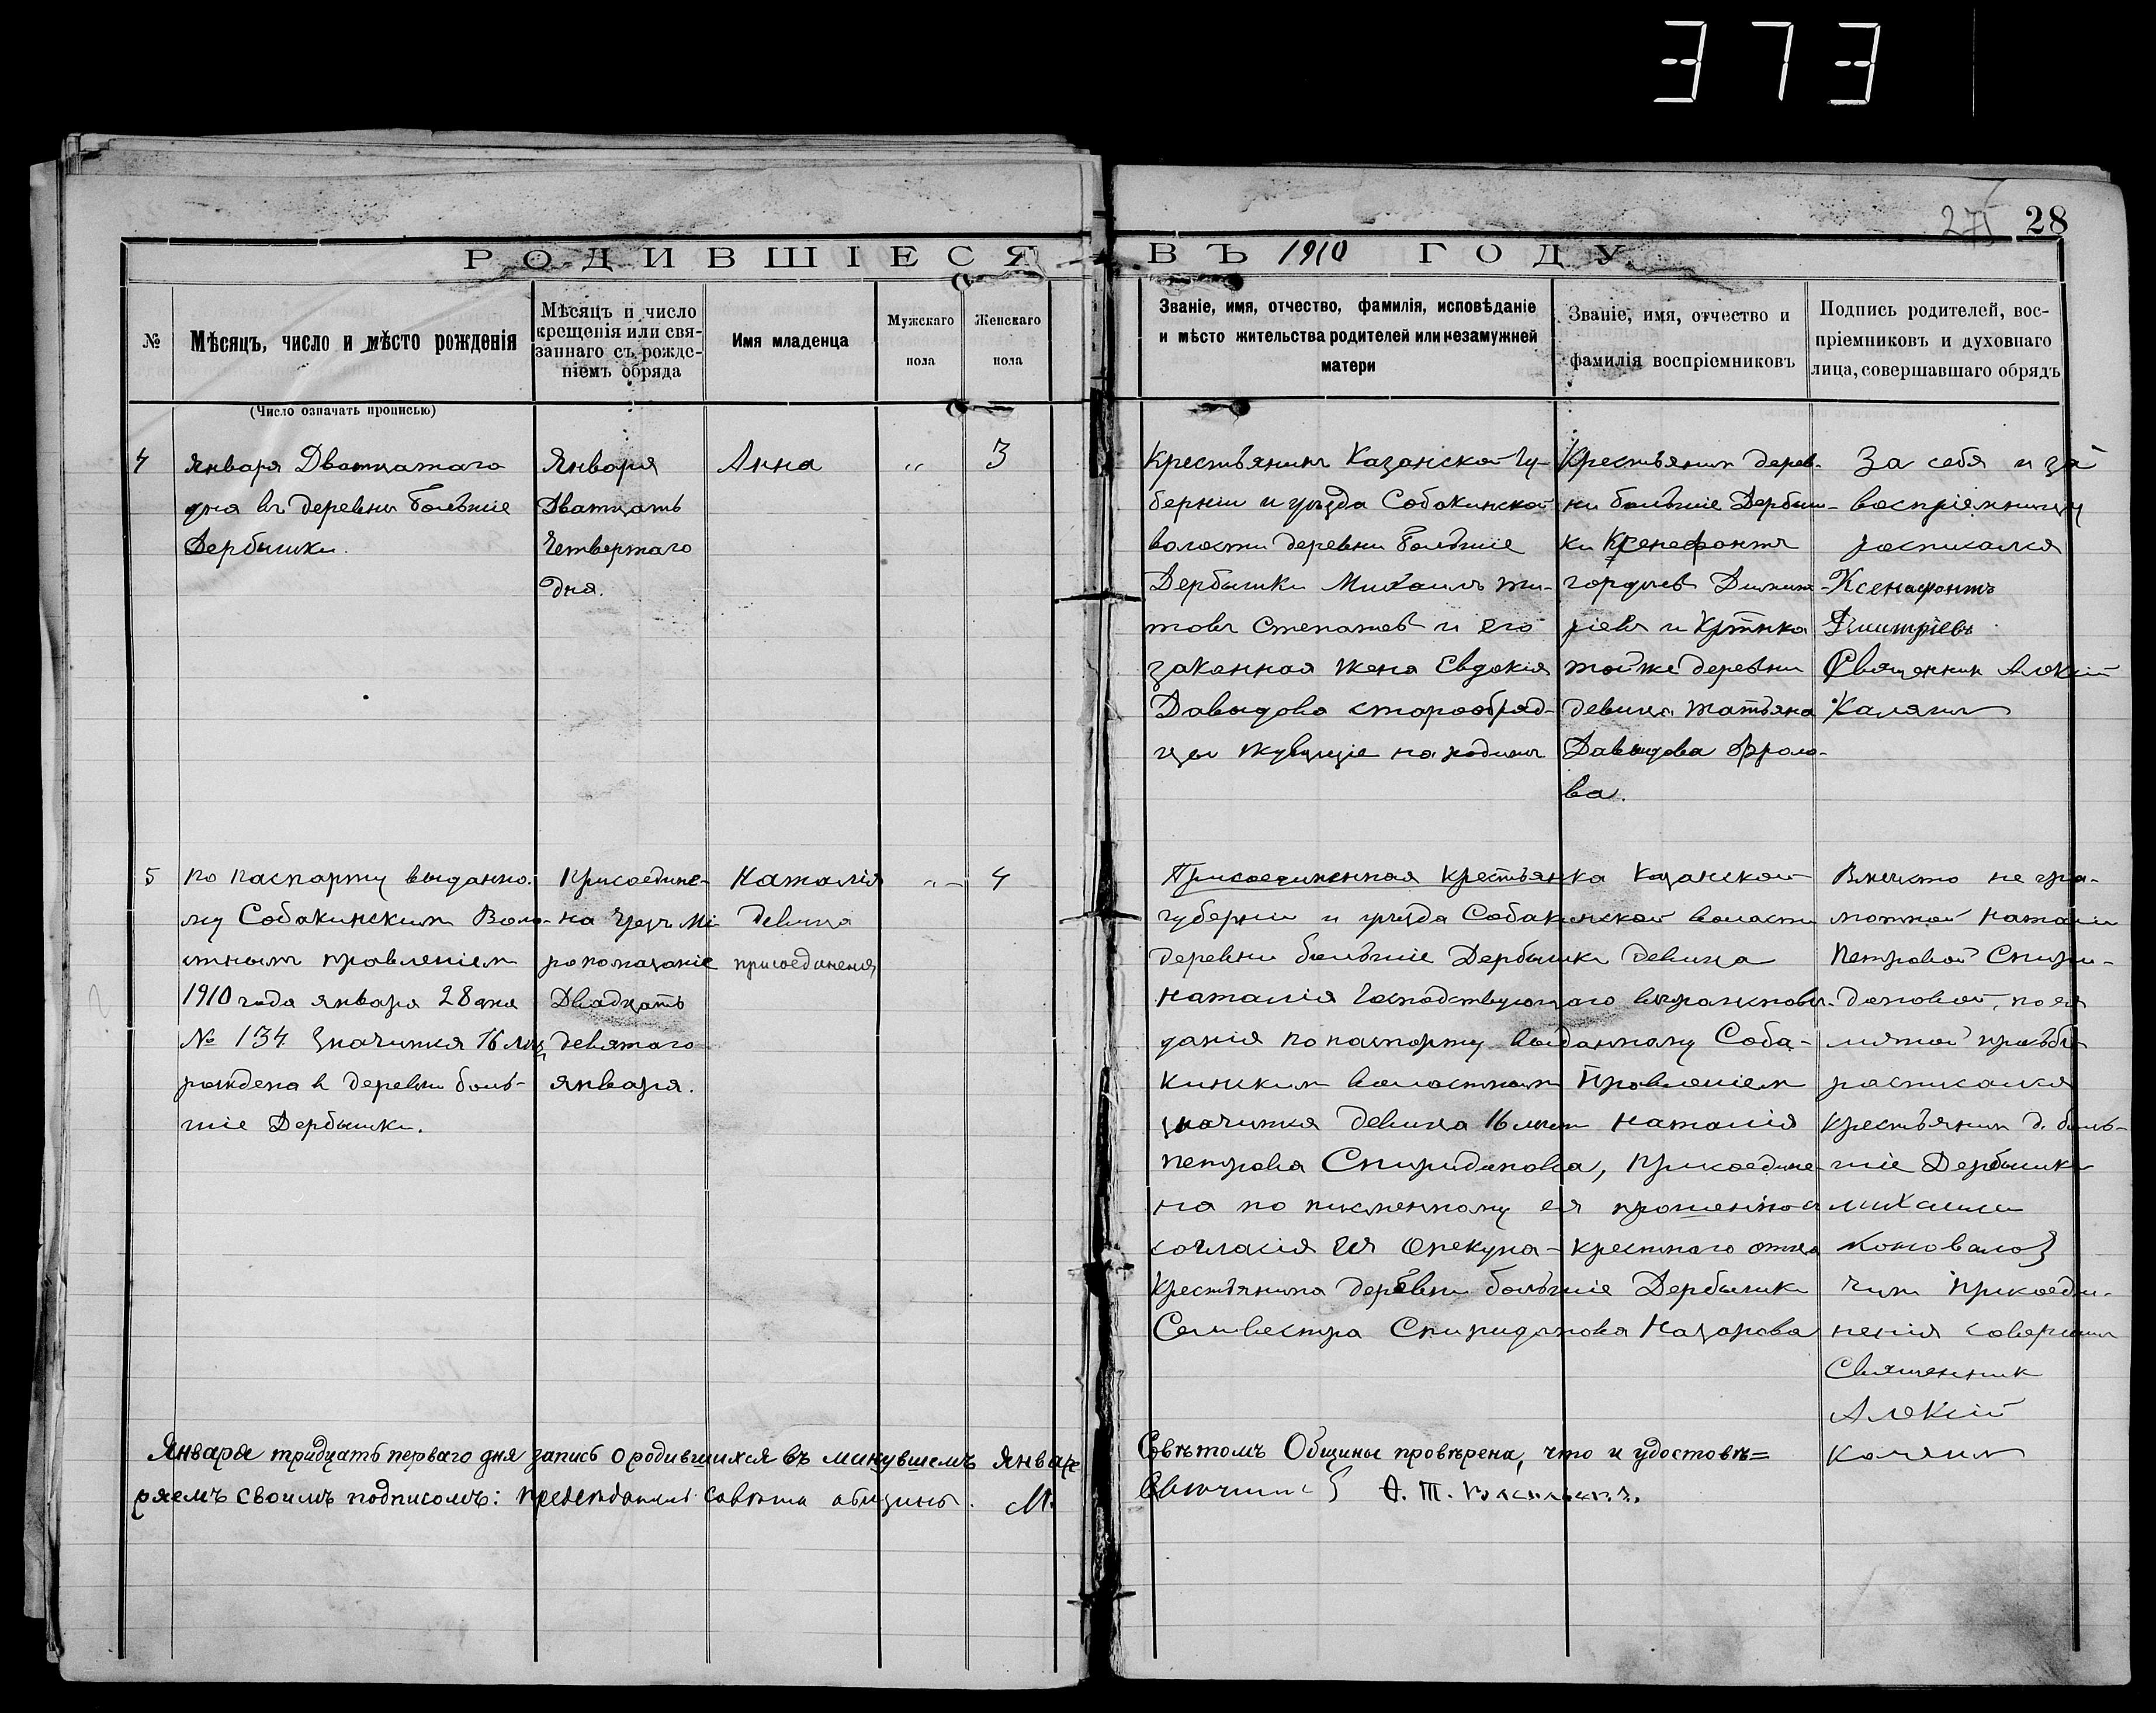 373
275 28
РОДИВШІЕСЯ ВЪ 1910 ГОДУ.
№
Мѣсяцъ, число и мѣсто рожденія
Мѣсяцъ и число
крещенія или свя-
заннаго съ рожде-
ніемъ обряда
Имя младенца
Мужскаго
пола
Женскаго
пола
Званіе, имя, отчество, фамилія, исповѣданіе
и мѣсто жительства родителей или незамужней
матери
Званіе, имя, отчество и
фамилія воспріемниковъ
Подпись родителей, вос-
пріемниковъ и духовнаго
лица, совершавшаго обрядъ
(Число означать прописью)
4
Января Дватцатаго
дня въ деревни большіе
Дербышки.
Января
Дватцать
Четвертаго
дня.
Анна
„
3
Крестьянинъ Казанской Гу-
берніи и уѣзда Собакинской
волости деревни большіе
Дербышки Михаилъ Ти-
товъ Степанов и его
законная жена Евдокія
Давыдова старообряд-
цы живущіе на родинѣ
Крестьянин дерев-
ни большіе Дербыш-
ки Ксенофонтъ
Дмит-
ріевъ и
тойже деревни
девица Татьяна
Давыдова Фроло-
ва.
За себя и за
воспріемницу
росписался
Ксенафонтъ
Дмитріевъ
Священник Алексій
Калягин
5
По паспорту выданно-
му Собакинским Воло-
стным правленіем
1910 года января 28 дня
№ 134 значится 16 лет
рождена в деревни боль-
шіе Дербышки.
Присоедине-
на чрез мі-
ропомазаніе
Двадцать
девятаго
января.
Наталія
девица
присоединеня
„ -
4
Присоединенная крестьянка Казанской
губерніи и уезда Собакинской волости
деревни большіе Дербышки девица
Наталія Господствующаго вероиспове-
данія по паспорту выданному Соба-
кинским волостным Правленіем
значится девица 16 лет Наталія
Петрова Спиридонова, Присоедине-
на по писменному ея прошенію и
согласія ея опекуна - крестнаго отца
Крестьянина деревни большіе Дербышки
Селивестра Спиридонова Назарова
Вместо не гра-
мотной Наталіи
Петровой Спири-
доновой, по ея
личной просьбе
росписался
крестьянин д. боль-
шіе Дербышки
Михаил
Коновалов
Чин Присоеди-
ненія совершил
Священник
Алексій
Калягин
Января тридцать перваго дня запись о родившихся въ минувшемъ Январе Совѣтомъ Общины провѣрена, что и удостовѣ=
ряемъ своимъ подписомъ: председатель совета общины. М.